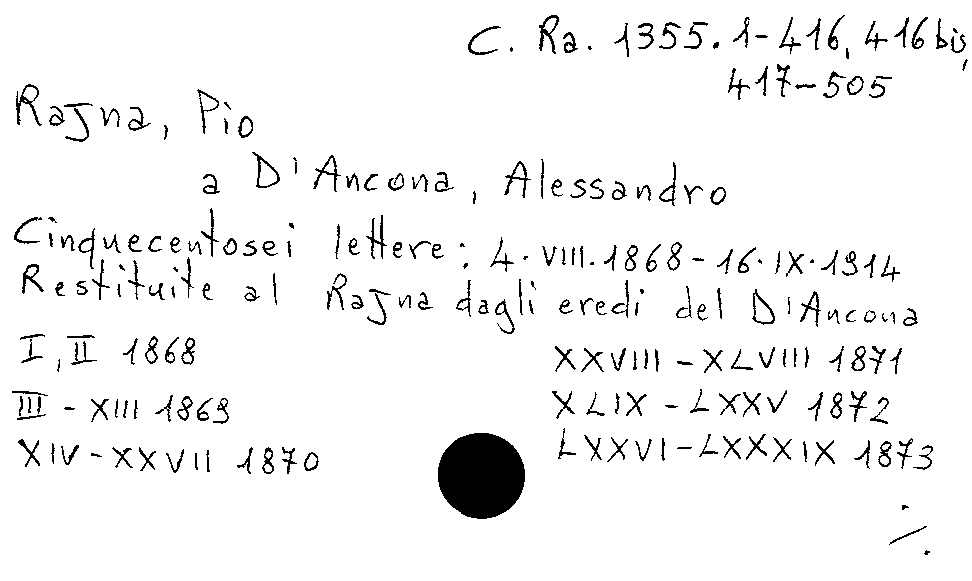 C. Ra. 1355. 1-416, 416 bis,
417-505
Rajna, Pio
a D'Ancona, Alessandro
Cinquecentosei lettere: 4. VIII. 1868 - 16. IX. 1914
Restituite al Rajna dagli eredi del D'Ancona
I, II 1868
III - XIII 1869
XIV - XXVII 1870
XXVIII - XLVIII 1871
XLIX - LXXV 1872
LXXVI - LXXXIX 1873
./.